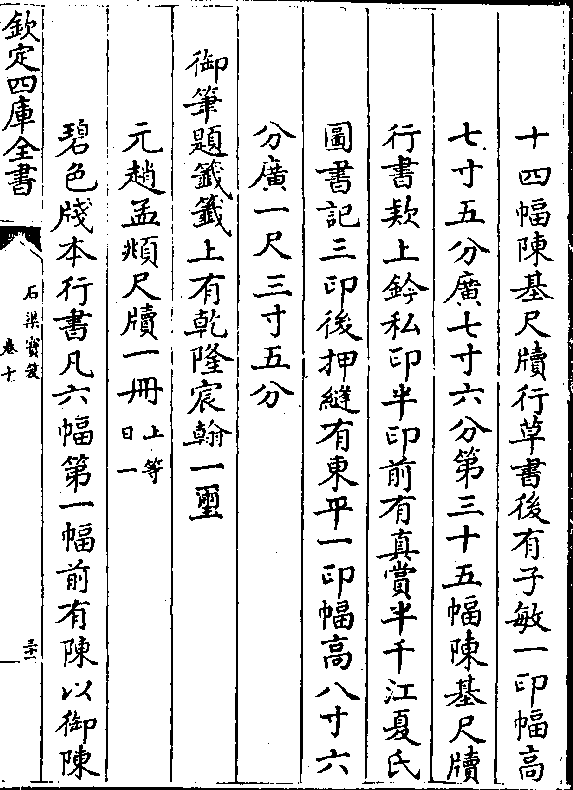 十四幅陳基尺牘行草書後有子敏一印幅高
七寸五分廣七寸六分第三十五幅陳基尺牘
行書款上鈐私印半印前有真賞半千江夏氏
圖書記三印後押縫有東平一印幅高八寸六
分廣一尺三寸五分
御筆題籤籤上有乾隆宸翰一璽
元趙孟頫尺牘一冊上等日一
碧色牋本行書凡六幅第一幅前有陳以御陳
欽定四庫全書
石渠寶笈
卷十